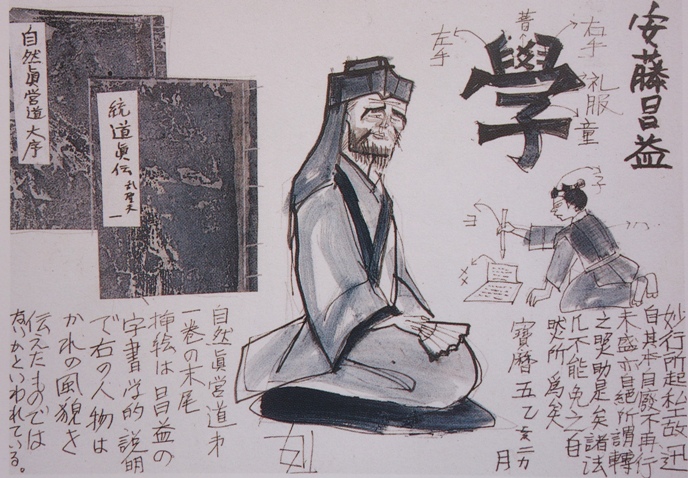 安藤昌益
昔
右手
左手
學
礼服
童
子
ヨ
メメ
自然眞営道 大序
統道眞伝 糺聖失 一
妙行所起私工故迅
自其本自廢不再行
未盛亦自絶所謂轉
之哭助是矣諸法
凢不能免之自
然所為矣
寶暦五乙亥二カ
月
自然眞営道第
一巻の末尾
挿絵は昌益の
字書学的説明
で右の人物は
かれの風貌を
伝えたものでは
ないかといわれている。